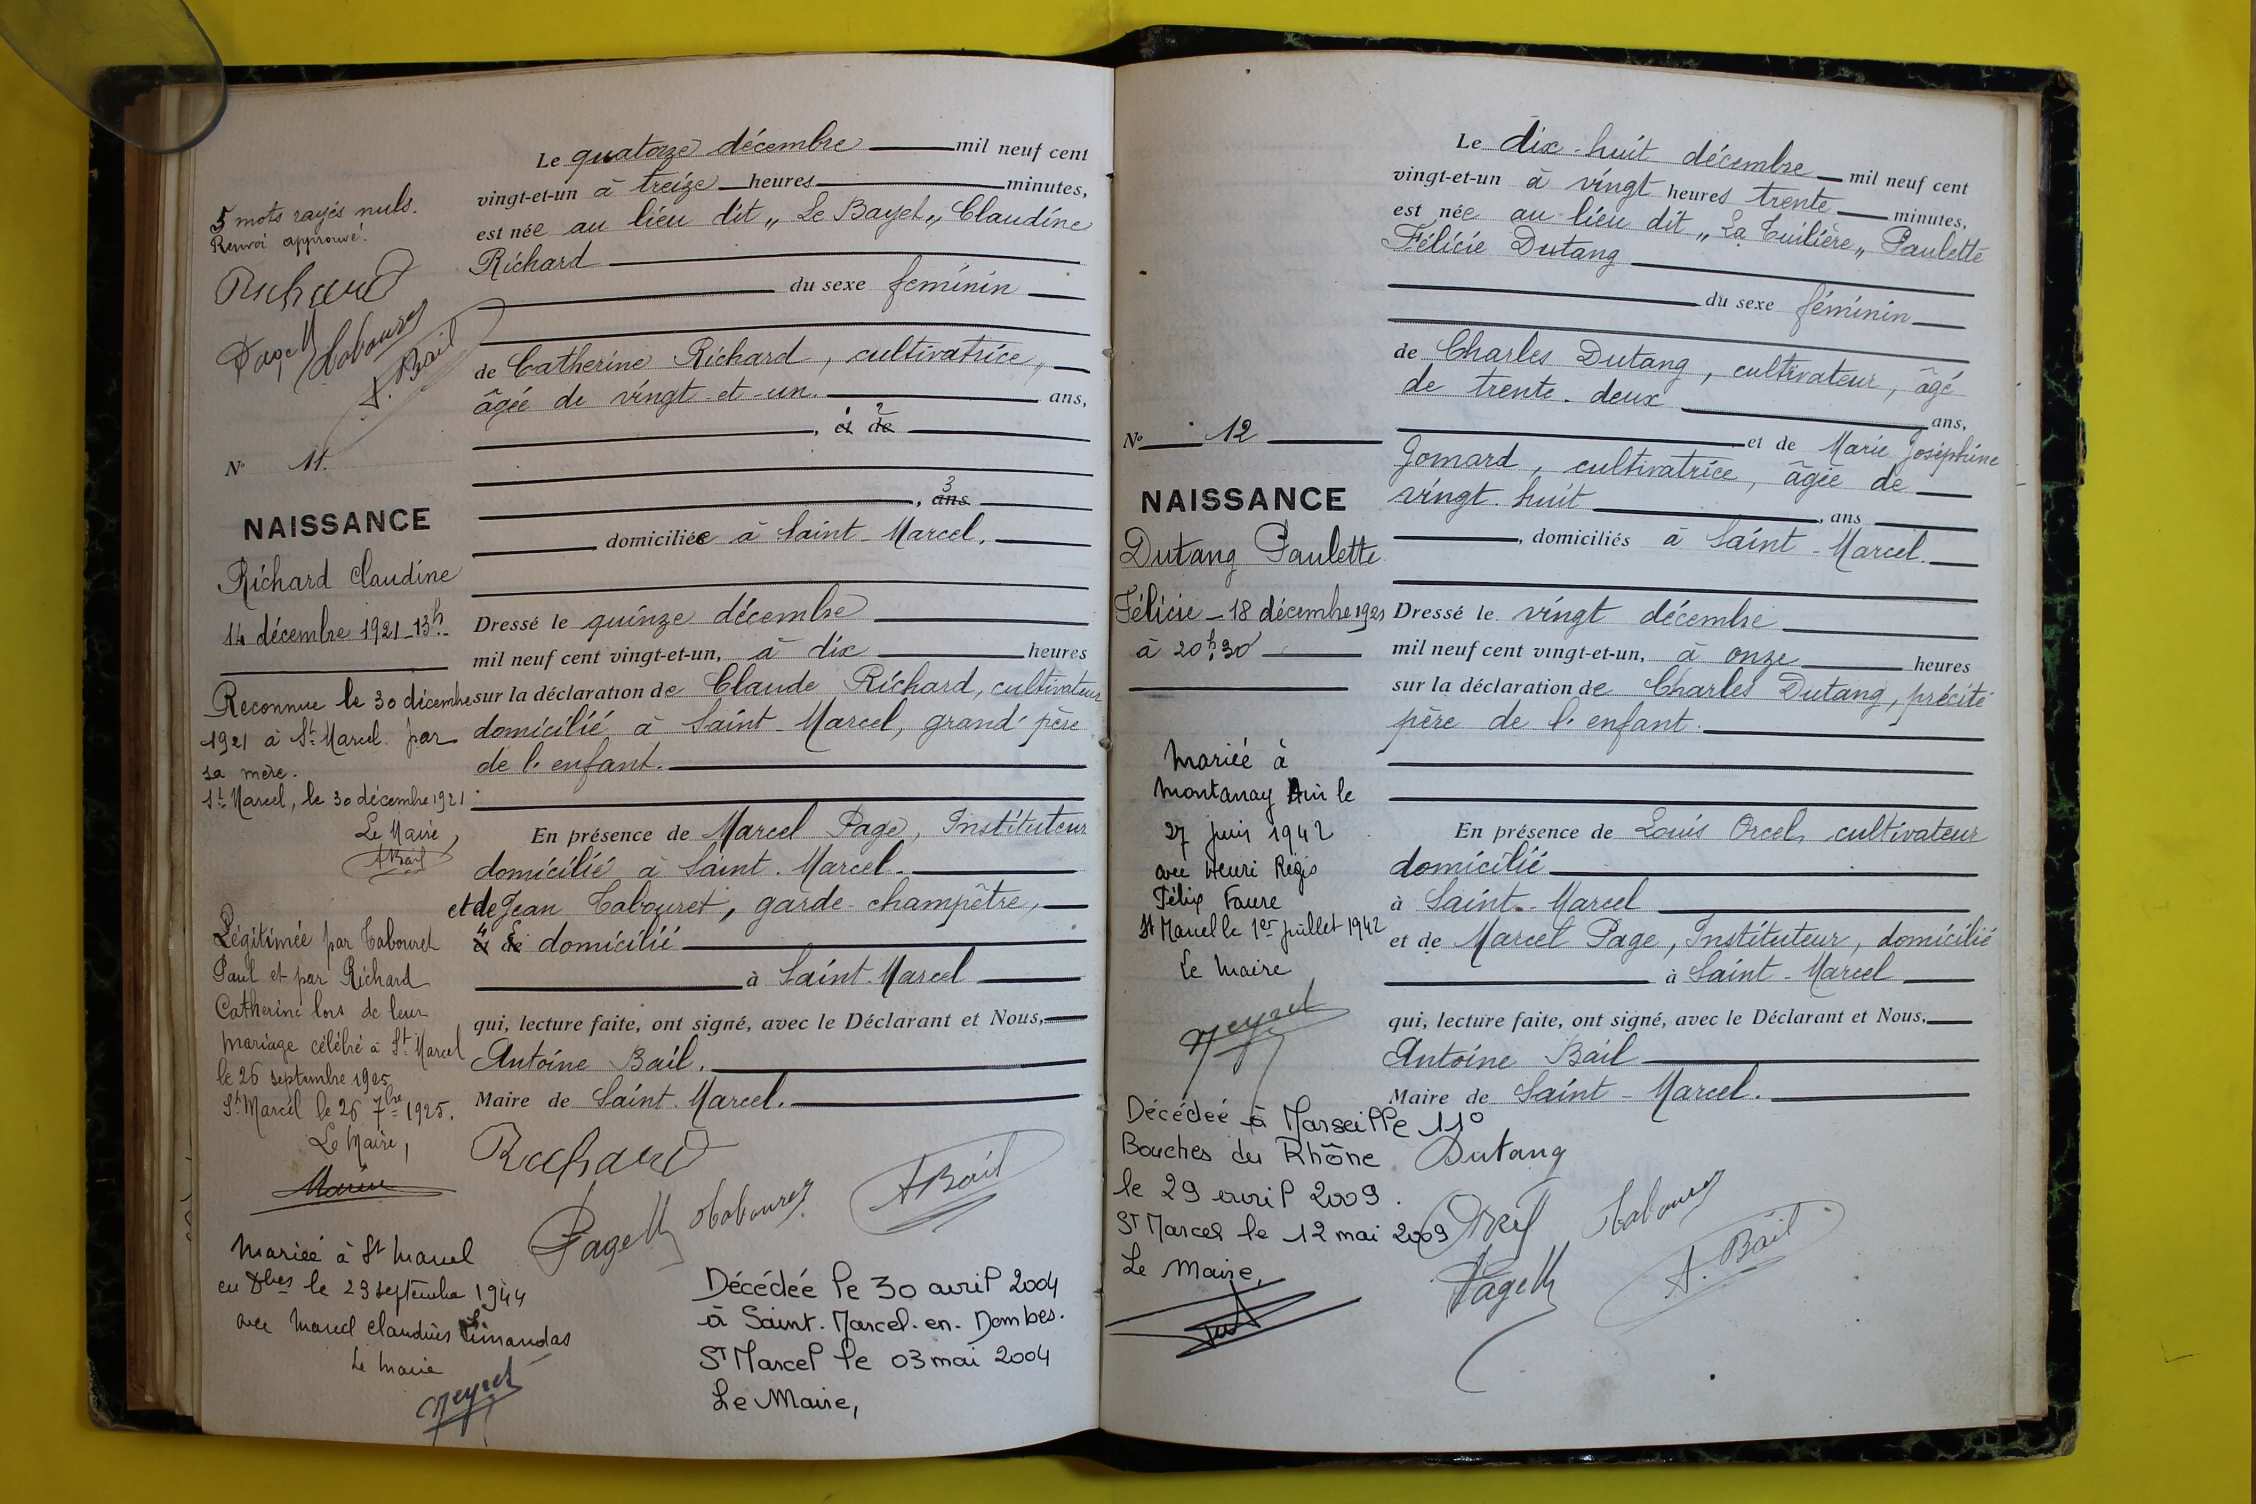 5 mots rayés nuls.
Renvoi approuvé.
Richard
Page Tabouret
A. Bail
N° 11.
NAISSANCE
Richard Claudine
14 décembre 1921 - 13h.
Reconnue le 30 décembre
1921 à St Marcel par
sa mère.
St Marcel, le 30 décembre 1921
Le Maire,
A Bail
Légitimée par Tabouret
Paul et par Richard
Catherine lors de leur
mariage célébré à St Marcel
le 26 septembre 1925
St Marcel le 26 7bre 1925.
Le Maire,
Mariée à St Marcel
en Dbes le 23 septembre 1944
avec Marcel Claudius
Le Maire
Neyret
Le quatorze décembre mil neuf cent
vingt-et-un à treize heures minutes,
est née au lieu dit „ Le Bayet „ Claudine
Richard
du sexe féminin
de Catherine Richard, cultivatrice,
âgée de vingt-et-un ans,
1 2
, et de
3
, ans
domiciliée à Saint-Marcel.
Dressé le quinze décembre
mil neuf cent vingt-et-un, à dix heures
sur la déclaration de Claude Richard, cultivateur
domicilié à Saint-Marcel, grand'père
de l'enfant.
En présence de Marcel Page, Instituteur
domicilié à Saint-Marcel.
et de Jean Tabouret, garde-champêtre,
4 5
et de domicilié
à Saint-Marcel
qui, lecture faite, ont signé, avec le Déclarant et Nous,
Antoine Bail.
Maire de Saint-Marcel.
Richard
Page Tabouret A Bail
Décédée le 30 avril 2004
à Saint-Marcel-en-Dombes.
ST Marcel le 03 mai 2004
Le Maire,
N° 12
NAISSANCE
Dutang Paulette
Félicie - 18 décembre 1921
à 20h30
Mariée à
Montanay Ain le
27 juin 1942
avec Henri Régis
Félix Faure
St Marcel le 1er juillet 1942
Le Maire
Neyret
Décédée à Marseille 11°
Bouches du Rhône
le 29 avril 2009.
ST Marcel le 12 mai 2009
Le Maire,
Le dix-huit décembre mil neuf cent
vingt-et-un à vingt heures trente minutes,
est née au lieu dit „ La Tuilière „ Paulette
Félicie Dutang
du sexe féminin
de Charles Dutang, cultivateur, âgé
de trente-deux ans,
et de Marie Joséphine
Gomard, cultivatrice, âgée de
vingt-huit , ans
, domiciliés à Saint-Marcel.
Dressé le vingt décembre
mil neuf cent vingt-et-un, à onze heures
sur la déclaration de Charles Dutang, précité
père de l'enfant.
En présence de Louis Orcel, cultivateur
domicilié
à Saint-Marcel
et de Marcel Page, Instituteur, domicilié
à Saint-Marcel
qui, lecture faite, ont signé, avec le Déclarant et Nous,
Antoine Bail
Maire de Saint-Marcel.
Dutang
Orcel Tabouret
Page A. Bail